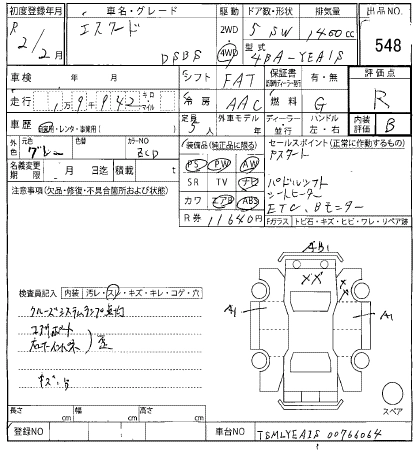 初度登録年月 車名・グレード 駆動 ドア数・形状 排気量 出品NO.
R 2/2月 エスクード DSBS 2WD 4WD 5 SW 1400cc 548
型式 4BA-YEA1S
車検 年 月 シフト FAT 保証書 有・無 評価点
走行 1万9,942 キロ マイル 冷房 AAC 燃料 G R
車歴 自家用・レンタ・事業用 定員 5人 外車モデル 年 ディーラー 並行 ハンドル 左・右 内装評価 B
外色 元色 グレー 色替 カラーNO ZCD 装備品(純正品に限る) セールスポイント(正常に作動するもの)
名義変更期限 月 日迄 積載 t PS PW AW Pスタート
注意事項(欠品・修復・不具合箇所および状態) SR TV ナビ パドルシフト
カワ エアB ABS シートヒーター
R券 11640円 ETC、Bモニター
Fガラス トビ石・キズ・ヒビ・ワレ・リペア跡
AB1
XX
XX
A1 A1
検査員記入 内装 汚レ・スレ・キズ・キレ・コゲ・穴
クルーズシステムランプ点灯
歪
スペア
長さ cm 幅 cm 高さ cm
登録NO 車台NO TSMLYEA1S 00766064